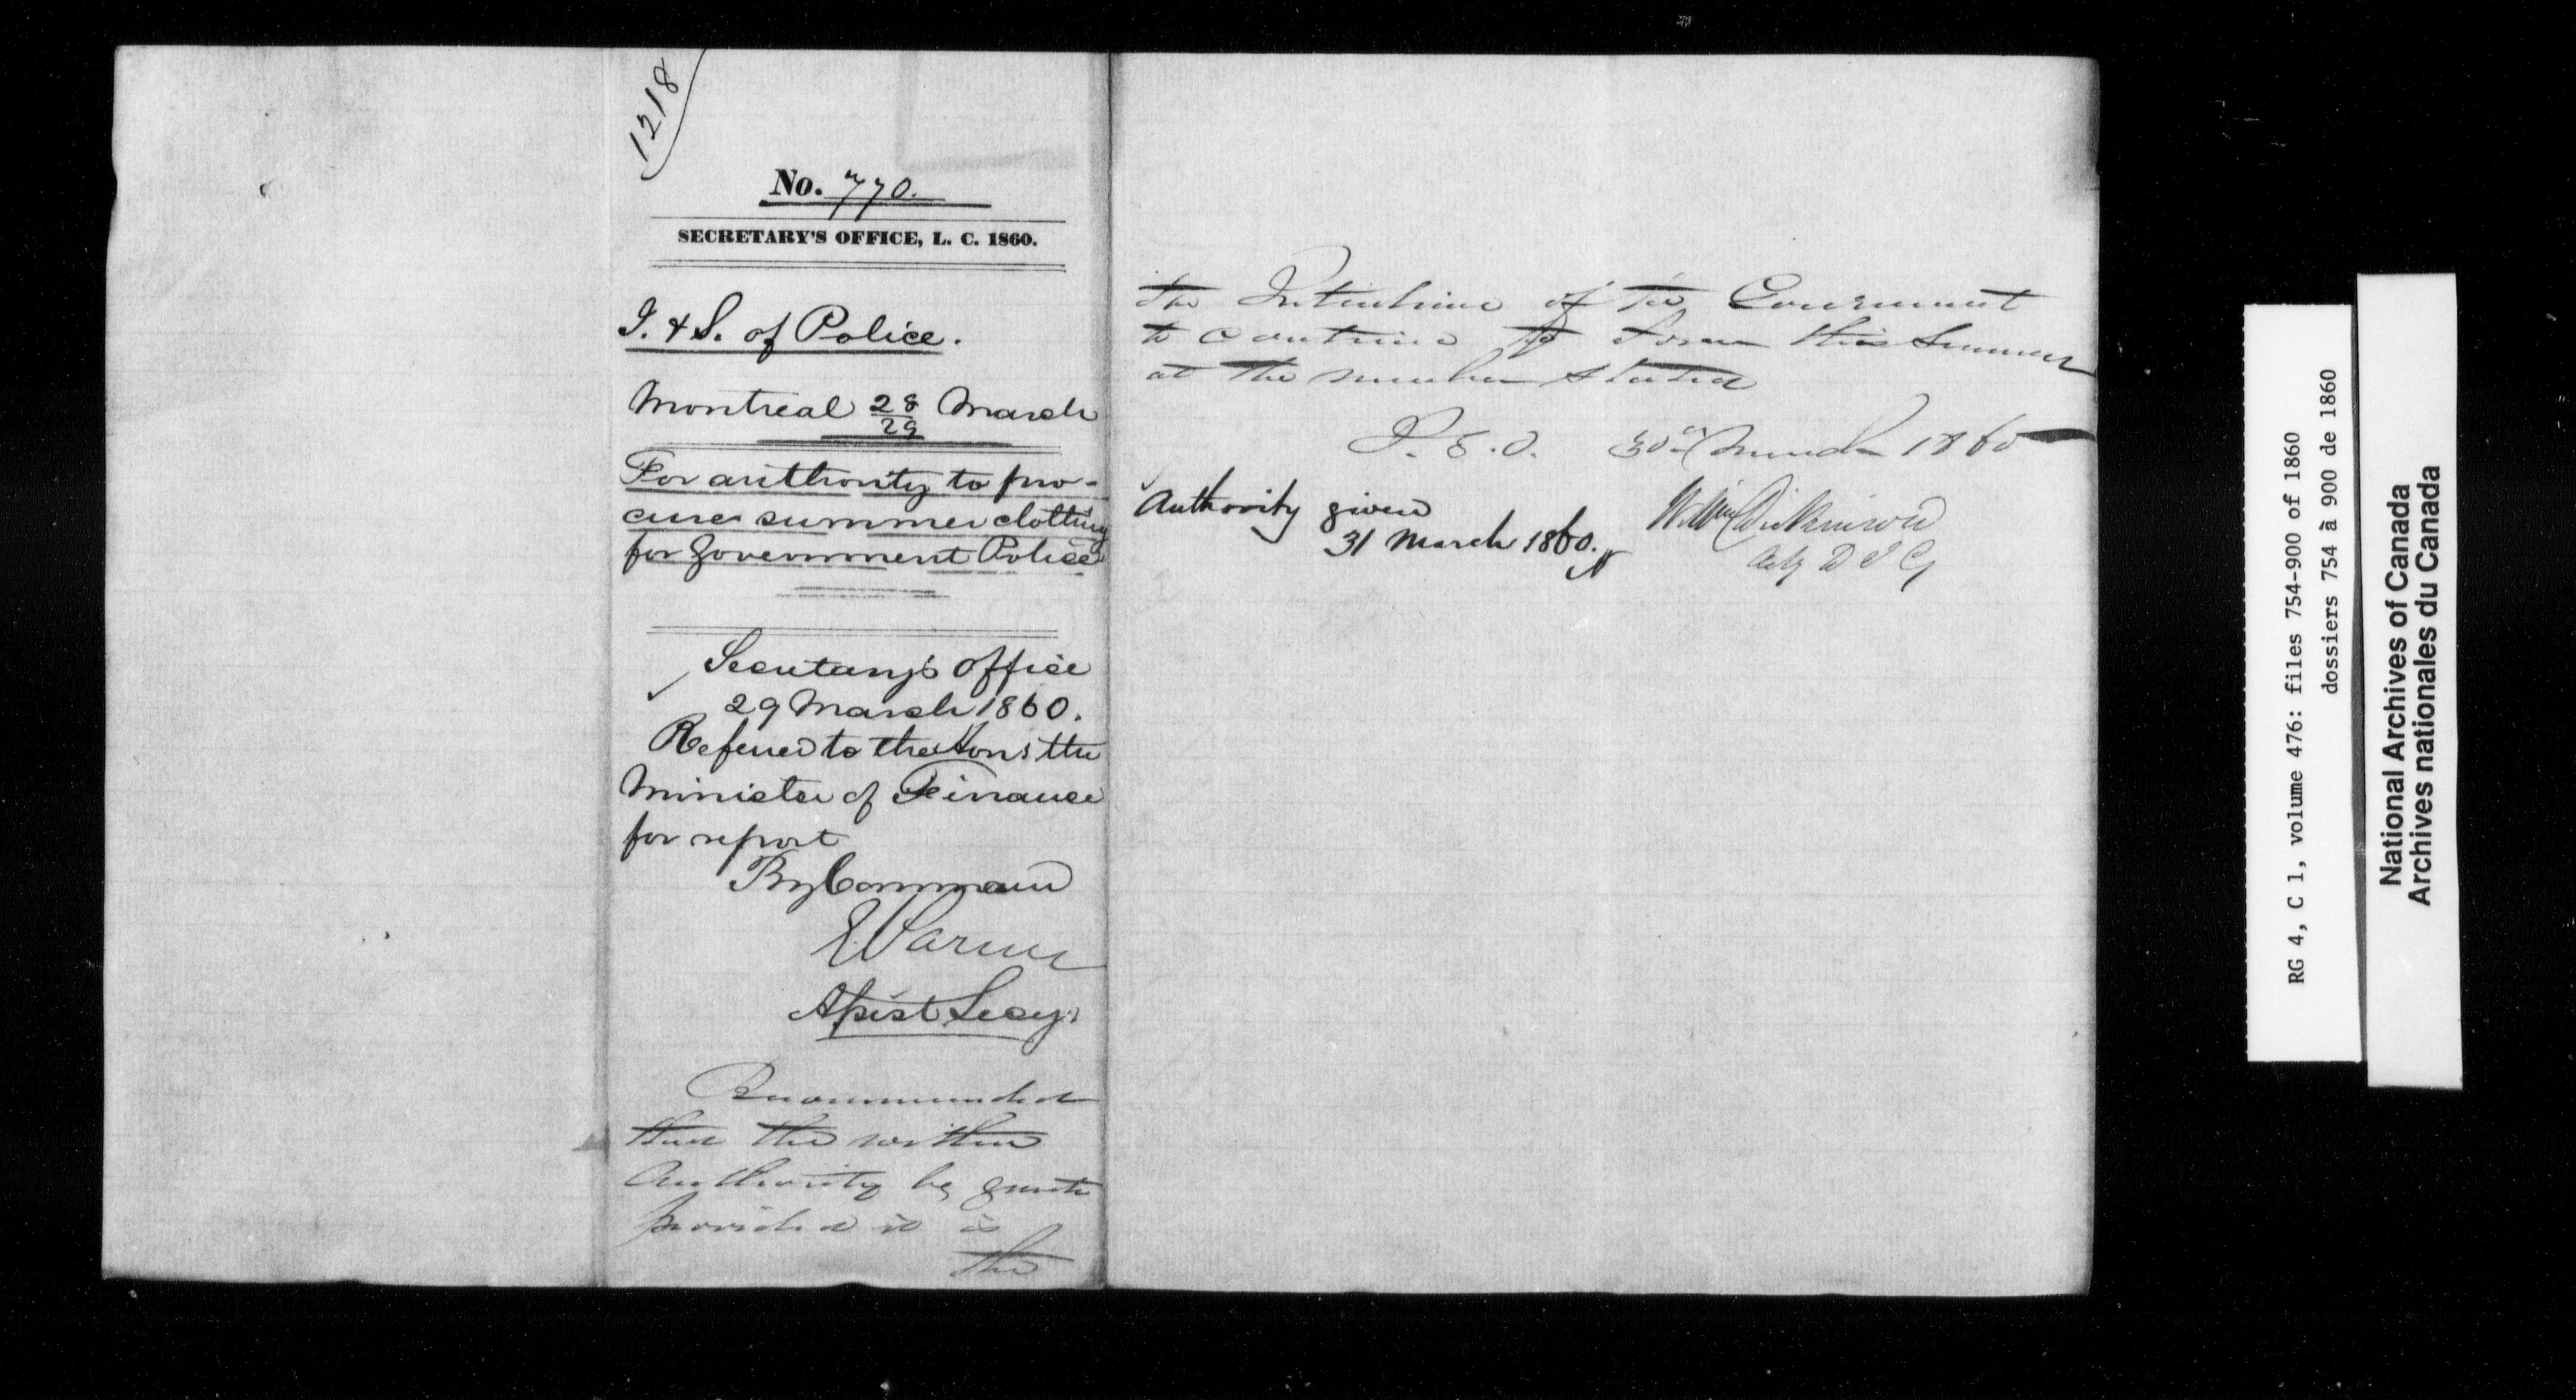 1218
No. 770.
SECRETARY'S OFFICE, L. C. 1860.
I. & S. of Police.
Montreal 28 March
29
For authority to pro-
cure summer clothing
for Government Police
Secretary's Office
29 March 1860.
Referred to the Honl the
Minister of Finance
for report
By Command
Assist Secy.
Recommended
that the within
Authority be granted
provided it is
the
the Intention of the Government
to continue the Force this Summer
at the number stated
30th March 1860
Authority given
31 March 1860.
Wm Dickinson
RG 4, C 1, volume 476: files 754-900 of 1860
dossiers 754 à 900 de 1860
National Archives of Canada
Archives nationales du Canada